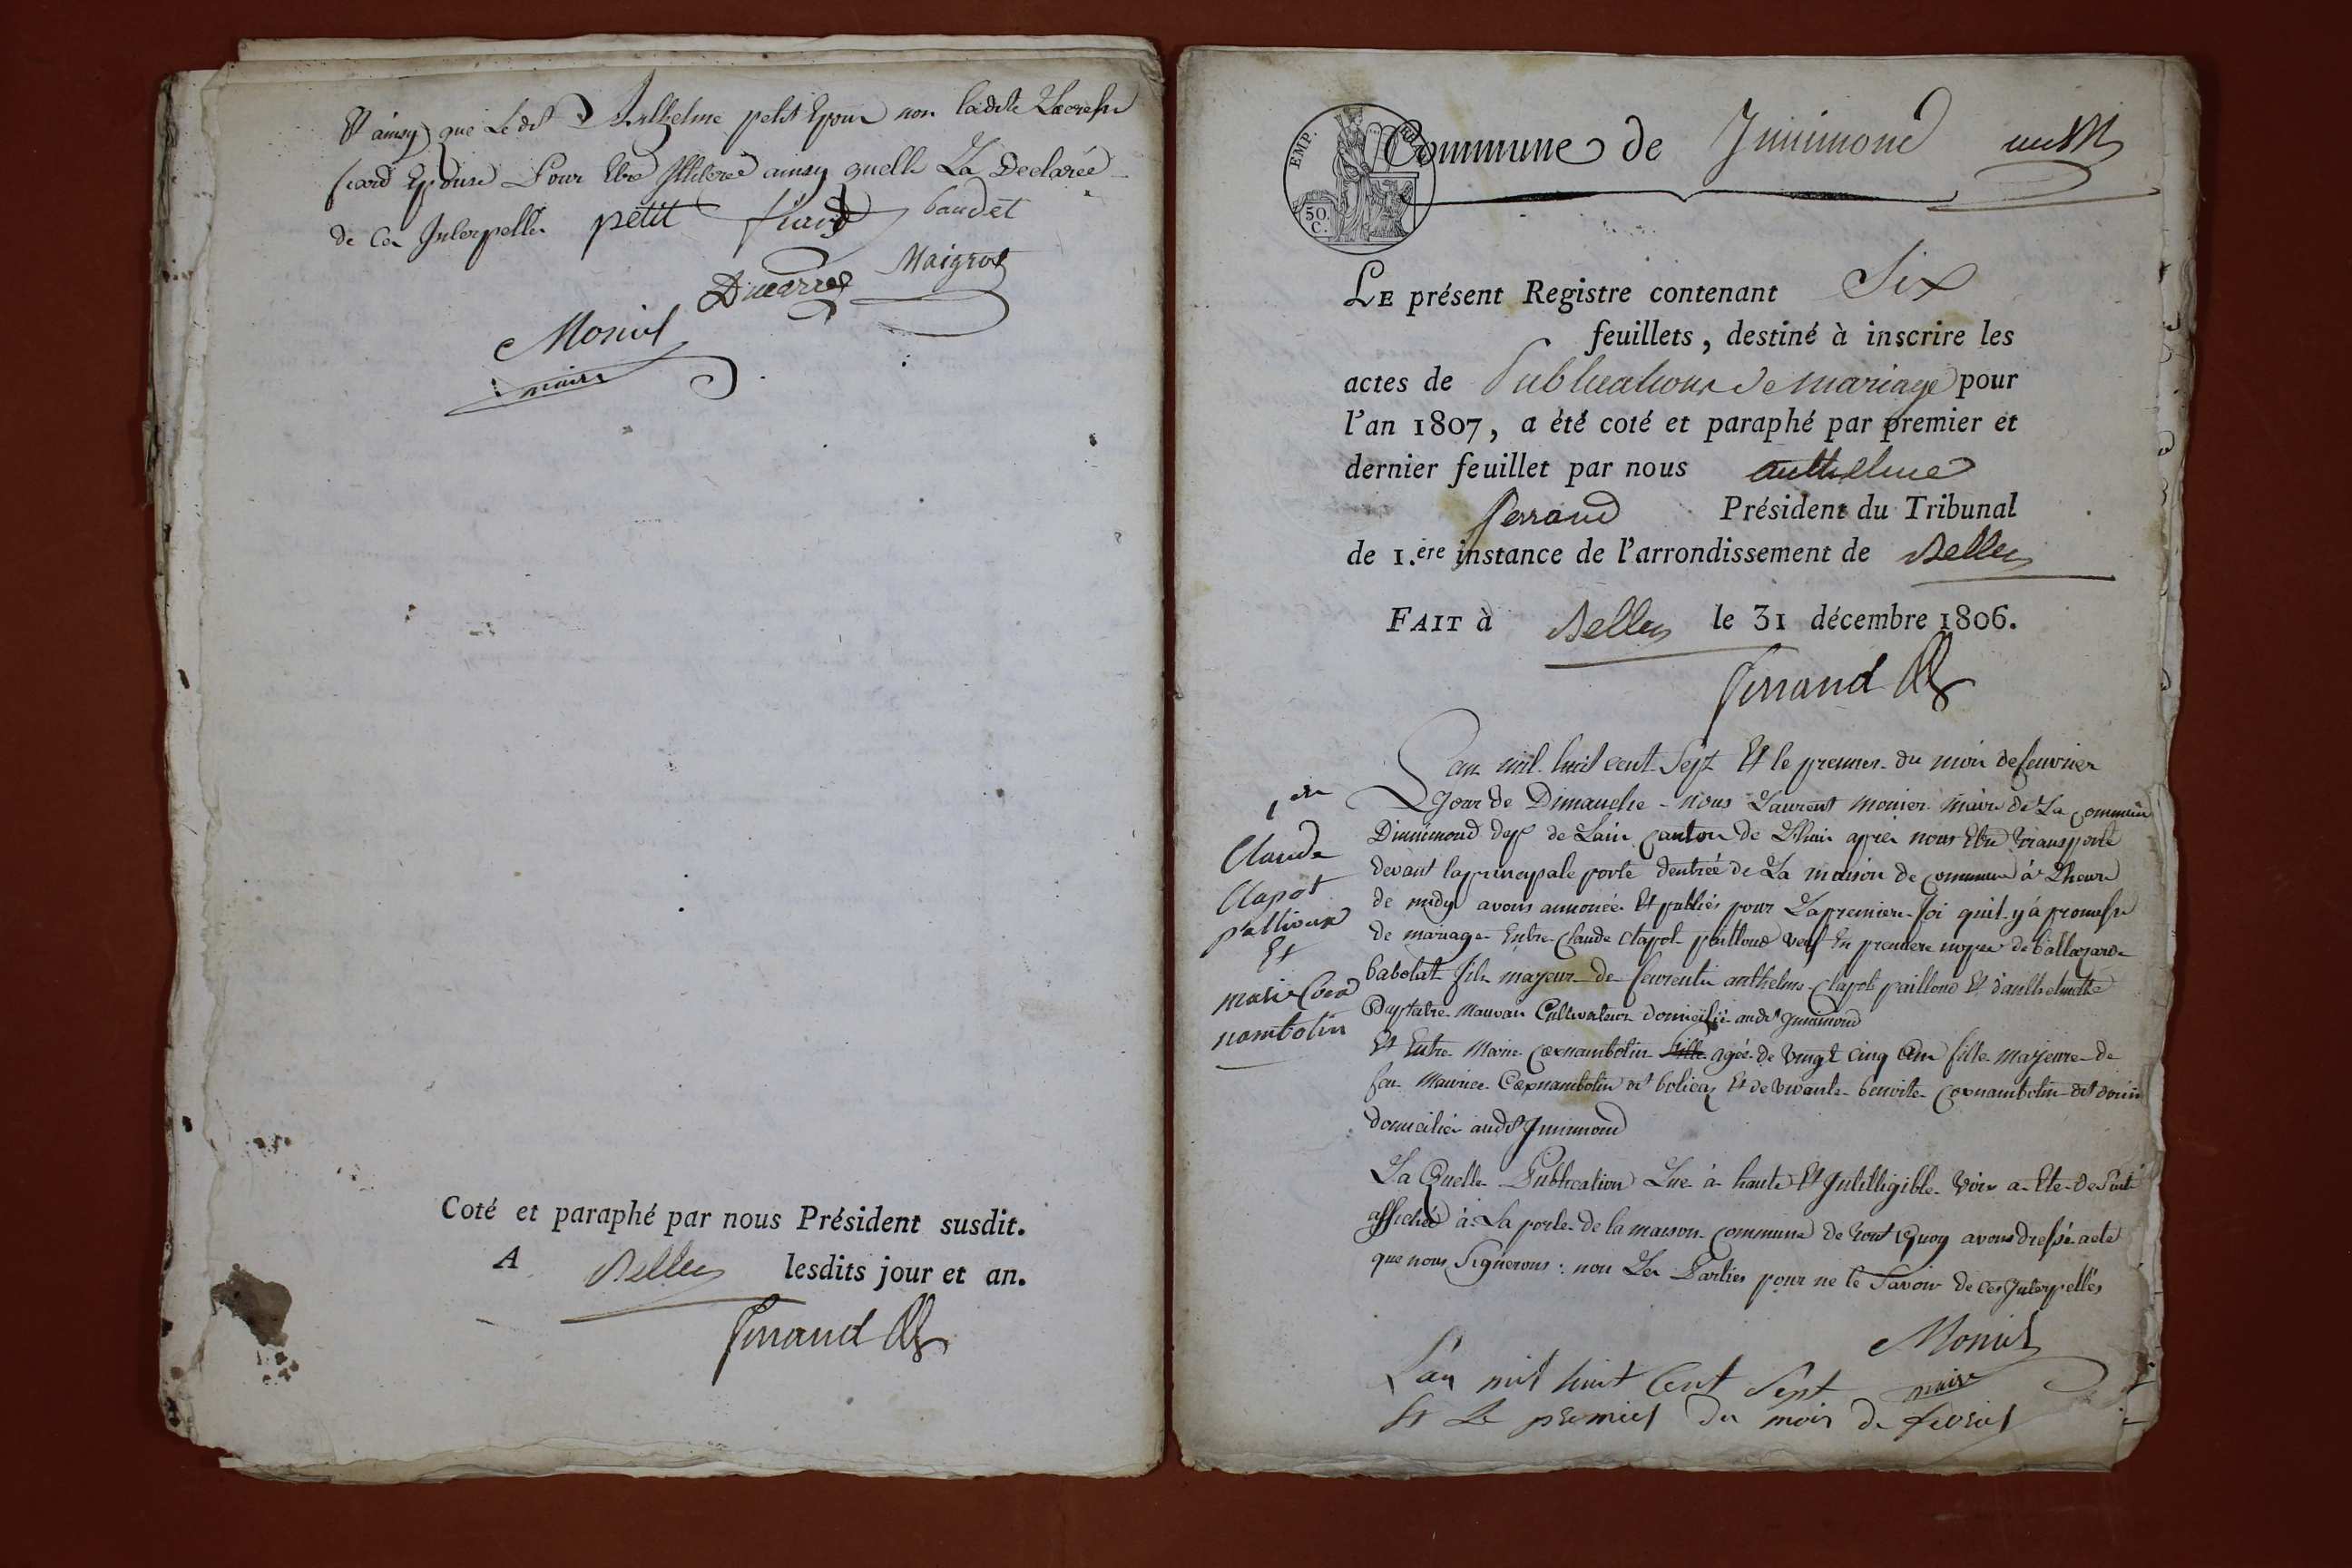 Et ainsy que Ledit Anthelme petit Epoux non ladite Lucresse
ficard Epouse Pour Etre Illiterée ainsy quelle La Declarée
de Ces Interpellée petit ficard baudet
Ducarre Maigrot
Monier
maire
Coté et paraphé par nous Président susdit.
A Belley lesdits jour et an.
ferrand
EMP.
50.
C.
Commune de Innimond un
LE présent Registre contenant Six
feuillets, destiné à inscrire les
actes de Publications de mariage pour
l'an 1807, a été coté et paraphé par premier et
dernier feuillet par nous anthelme
ferrand Président du Tribunal
de 1.ère instance de l'arrondissement de Belley
FAIT à Belley le 31 décembre 1806.
ferrand
1er
Claude
Clapot
pallioux
Et
marie Coex
nambotin
Lan mil huit cent Sept Et le premier du mois de feuvrier
Jour de Dimanche nous Laurent monier maire de La commune
Dinnimond dept de Lain Canton de Lhuis apres nous Etre transporté
devant la principale porte dentrée de La maison de commune à Lheure
de midy avons annoncée Et publiés pour La premiere foi quil y à promesse
de mariage Entre Claude Clapot pailloud veuf En premiere nopce de ballazarde
babolat fils mayeur de feu anthelme Clapot pailloud Et d'anthelmette
mauvais Cultivateur domicilié audit Innimond
Et Entre Marie Coexnambotin fille agée de vingt cinq ans fille mayeure de
feu Maurice Coexnambotin dt bolicaz Et de vivante benoite Coexnambotin dit
domicilié audit Innimond
La Quelle Publication Lue à haute Et Intilligible voix a Ete de Suite
affichée à La porte de la maison commune de tout Quoy avons dressé acte
que nous Signerons : non Les Parties pour ne le Savoir de ces Interpellés
Monier
maire
L'an mil huit Cent Sept
Et Le premier du mois de fevrier